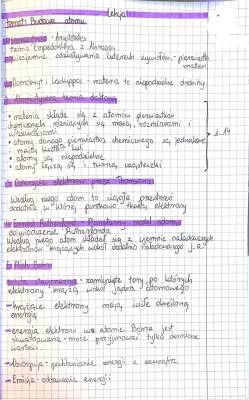 Lekcja 1
Temat: Budowa atomu
Starożytność - Arystoteles
teoria Empedoklesa z
Wzajemne oddziaływania czterech żywiołów - pierwiastki
materii
Demokryt i Leukippos - materia to niepodzielne drobiny
Atomistyczna teoria Daltona
• materia składa się z atomów pierwiastków
chemicznych różniących się masą, rozmiarami i
właściwościami
• atomy danego pierwiastka chemicznego są jednakowe
mają
• atomy są niepodzielne
• atomy łączą się i tworzą cząsteczki
Odkrycie elektronu przez Thomsona
Według niego atom to ciągła przestrzeń
dodatnia w której, punktowo tkwią elektrony
Ernest Rutherford - Planetarny model atomu
doświadczenie Rutherforda
Według niego atom składał się z ujemnie naładowanych
elektronów krążących wokół dodatnio naładowanego j.a.
Niels Bohr
orbita stacjonarna - zamknięte tory, po których
elektrony krążą wokół jądra atomowego
- krążące elektrony mają ściśle określoną
energię
- energia elektronu we atomie Bohra jest
skwantowana - może przyjmować tylko określone
wartości
- Absorpcja - pochłanianie energii z zewnątrz
- Emisja - oddawanie energii